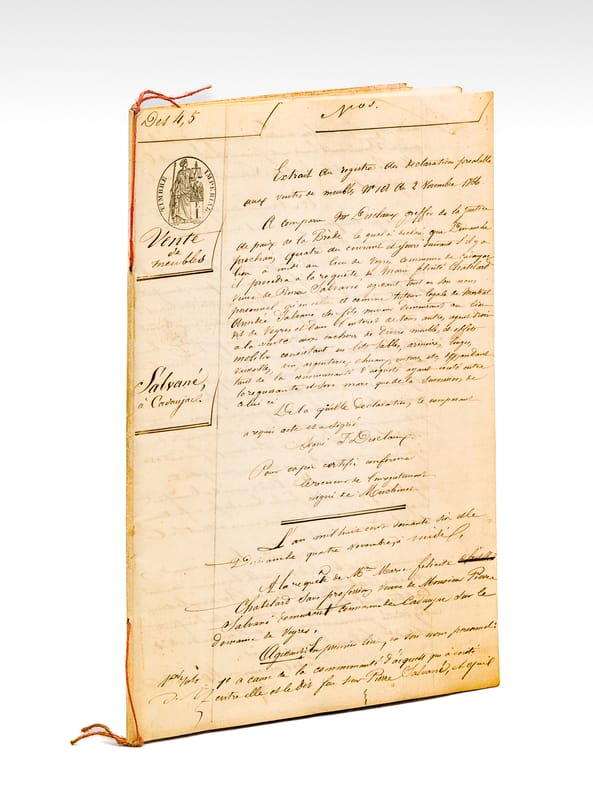 Des 4, 5
Nos.
TIMBRE IMPERIAL
Vente
de
meubles
Salvané,
à Cadaujac.
Extrait du registre des déclarations préalables
aux ventes de meubles No 103 du 2 Novembre 1866
A comparu Mr Desclaux greffier de la Justice
de paix de la Brède lequel a déclaré que Dimanche
prochain quatre du courant et jours suivants s'il y a
lieu à midi au lieu de Veyres commune de
il procédera à la requête de Marie félicité Chatelard
Veuve de Pierre Salvané agissant tant en son nom
personnel qu'en celle et comme tutrice légale de
Amédée Salvané son fils mineur demeurant au lieu
dit de Veyres et dans l'intérêt de tous autres ayant droit
à la vente aux enchères de divers meubles et effets
mobiliers consistant en lits, tables, armoires, linges,
vaisselles, vin, argenterie, chevaux, voitures, etc dépendant
tant de la communauté d'acquêts ayant existé entre
la requérante et son mari que de la succession de
celui ci
De laquelle déclaration, le comparant
a requis acte et a signé
signé J. Desclaux
Pour copie certifié conforme
Le receveur de l'enregistrement
signé de
L'an mil huit cent soixante six et le
Dimanche quatre novembre, à midi,
A la requête de Me Marie félicité
Chatelard sans profession, veuve de Monsieur Pierre
Salvané demeurant commune de Cadaujac sur le
domaine de Veyres,
Agissant: En premier lieu, en son nom personnel:
1o à cause de la communauté d'acquêts qui a existé
entre elle et le dit feu sieur Pierre Salvané, et qu'il